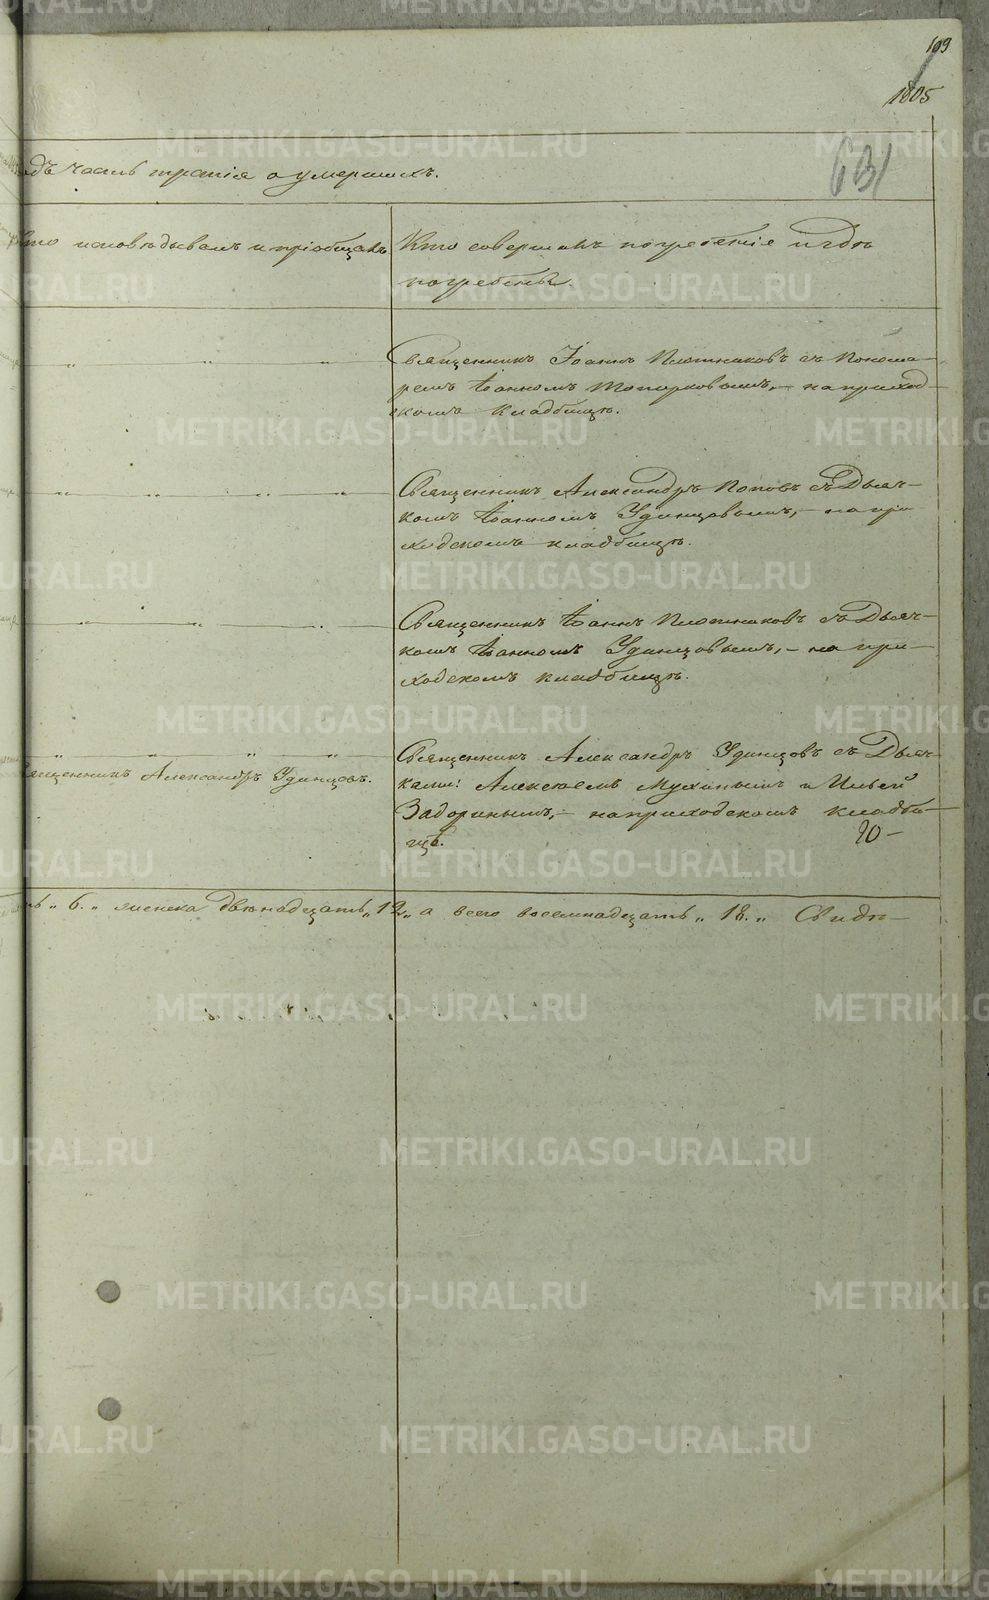 109
1805
631
одъ часть третія о умершихъ.
Кто исповѣдывалъ и пріобщалъ
Кто совершалъ погребеніе и гдѣ
погребены.
Священникъ Іоаннъ Плотниковъ съ Понома-
ремъ Іоанномъ Топорковымъ, – на приход-
скомъ кладбищѣ.
Священникъ Александръ Поповъ съ Дьяч-
комъ Іоанномъ Удинцовымъ, – на при-
ходскомъ кладбищѣ.
Священникъ Іоаннъ Плотниковъ съ Дьяч-
комъ Іоанномъ Удинцовымъ, – на при-
ходскомъ кладбищѣ.
Священникъ Александръ Удинцовъ.
Священникъ Александръ Удинцовъ съ Дьяч-
ками: Алексѣемъ Мухинымъ и Ильей
Задоринымъ, – на приходскомъ кладби-
щѣ. 20 –
ъ „ 6. „ женска двѣнадцать „ 12 „ а всего восемнадцать „ 18. „ Свидѣ-
METRIKI.GASO-URAL.RU